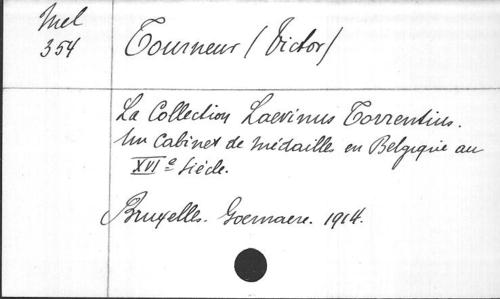 Mel
354
Tourneur (Victor)
La Collection Laevinus Torrentius.
Un Cabinet de Médailles en Belgique au
XVIe Siécle.
Bruxelles. Goemaere. 1914.